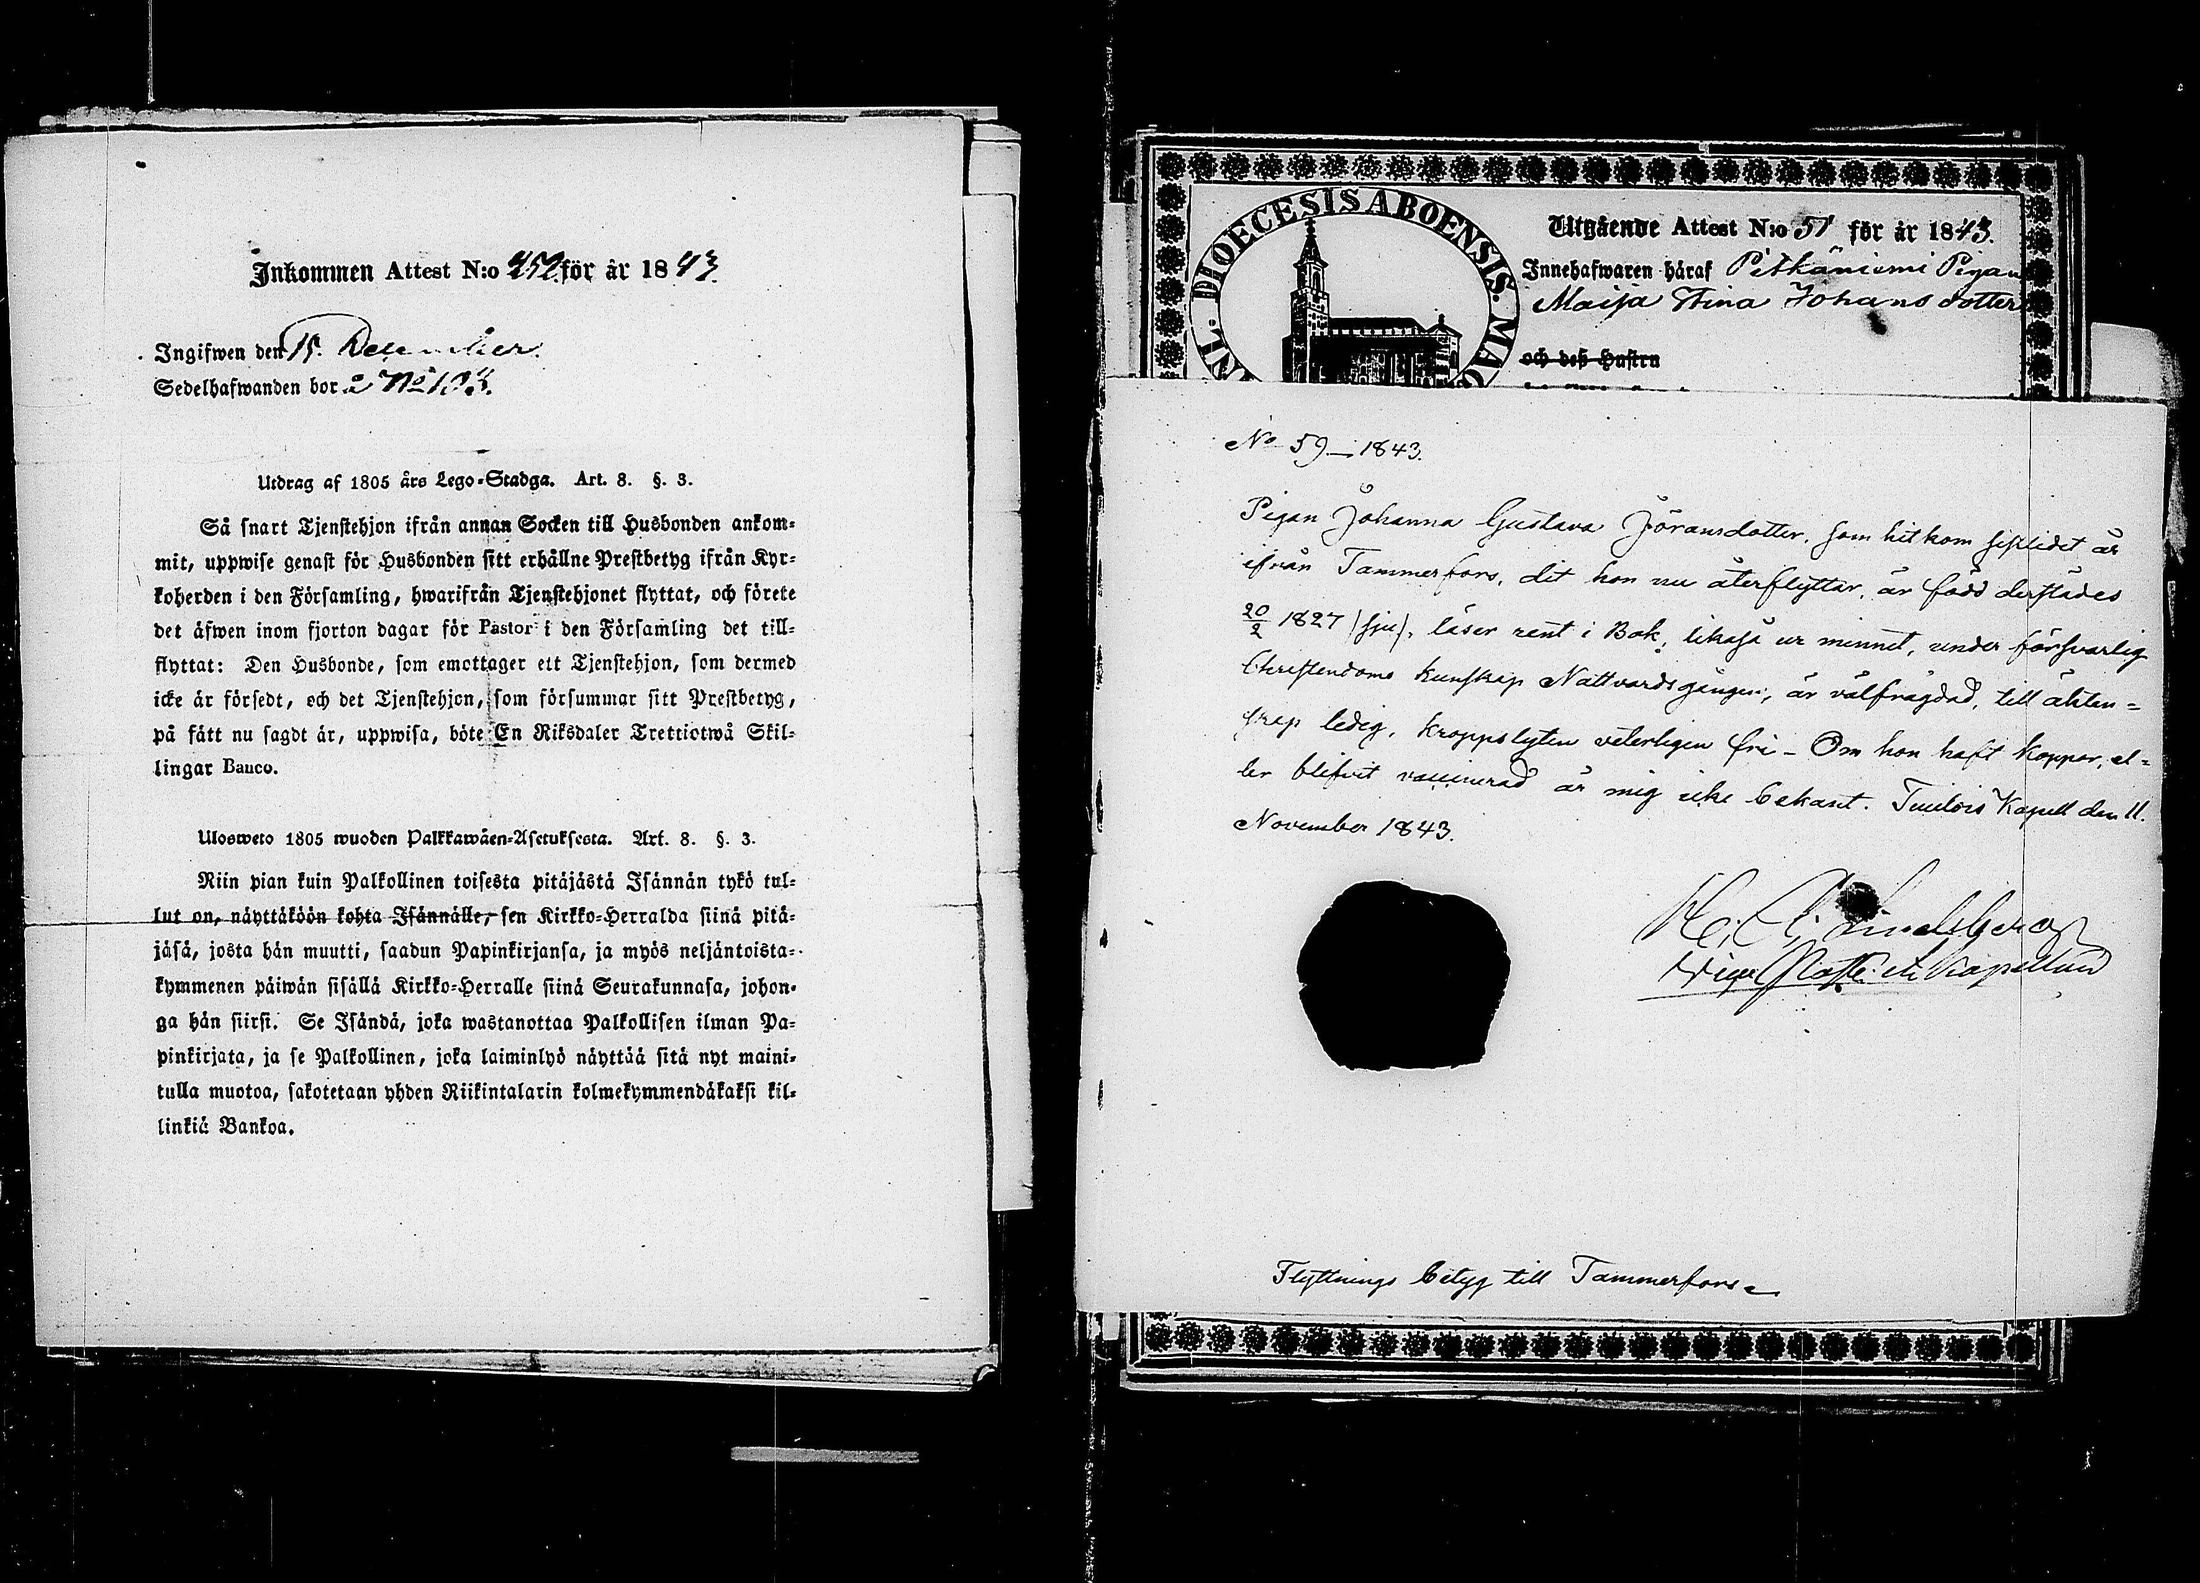 Inkommen Attest N:o 452 för år 1843.
Ingifwen den 15. December.
Sedelhafwanden bor å No 103.
Utdrag af 1805 års Lego-Stadga. Art. 8. §. 3.
Så snart Tjenstehjon ifrån annan Socken till Husbonden ankom-
mit, uppwise genast för Husbonden sitt erhållne Prestbetyg ifrån Kyr-
koherden i den Församling, hwarifrån Tjenstehjonet flyttat, och förete
det äfwen inom fjorton dagar för Pastor i den Församling det till-
flyttat: Den Husbonde, som emottager ett Tjenstehjon, som dermed
icke är försedt, och det Tjenstehjon, som försummar sitt Prestbetyg,
på sätt nu sagdt är, uppwisa, böte En Riksdaler Trettiotwå Skil-
lingar Banco.
Ulosweto 1805 wuoden Palkkawäen-Asetuksesta. Art. 8. §. 3.
Niin pian kuin Palkollinen toisesta pitäjästä Isännän tykö tul-
lut on, näyttäköön kohta Isännälle, sen Kirkko-Herralda siinä pitä-
jäsä, josta hän muutti, saadun Papinkirjansa, ja myös neljäntoista-
kymmenen päiwän sisällä Kirkko-Herralle siinä Seurakunnasa, johon-
ga hän siirsi. Se Isändä, joka wastanottaa Palkollisen ilman Pa-
pinkirjata, ja se Palkollinen, joka laiminlyö näyttää sitä nyt maini-
tulla muotoa, sakotetaan yhden Riikintalarin kolmekymmendäkaksi kil-
linkiä Bankoa.
DIOECESIS ABOENSIS. MAG
NL.
Utgående Attest N:o 51 för år 1843.
Innehafwaren häraf Pitkäniemi Pigan
Maija Stina Johansdotter
och deß Hustru
No 59. 1843.
Pigan Johanna Gustava Jöransdotter, som hitkom sistlidet år
ifrån Tammerfors, dit hon nu återflyttar, är född derstädes
20/2 1827 (sju), läser rent i Bok, likaså ur minnet, under försvarlig
Christendoms kunskap Nattvardsgången, är välfrägdad, till äkten-
skap ledig, kroppslyten veterligen fri - Om hon haft koppor, el-
ler blifvit vaccinerad är mig icke bekant. Tuulois Kapell den 11.
November 1843.
Lindsberg
Vice Past. et Kapellan
Flyttnings betyg till Tammerfors